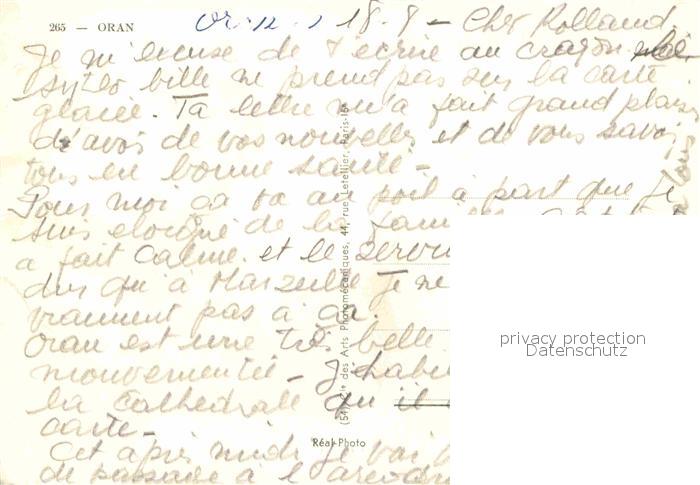 265 — ORAN
Oran, 18-8 - Cher Rolland
Je m'excuse de t'ecrire au crayon
stylo bille ne prend pas sur la carte
glacée. Ta lettre m'a fait grand plais
d'avoir de vos nouvelles et de vous savoir
tous en bonne santé -
Pour moi ça va au poil à part que je
suis eloigné de la
a fait calme. et le
dur qu'à Marseille Je ne
vraiment pas à ça.
Oran est une très belle
mouvementée - J'habi
la Cathédrale qu'il
carte -
Cet après midi je vai
de passage à l'
Réal-Photo
(54) Cie des Arts Photomécaniques, 44, rue Letellier, Paris-15e
privacy protection
Datenschutz